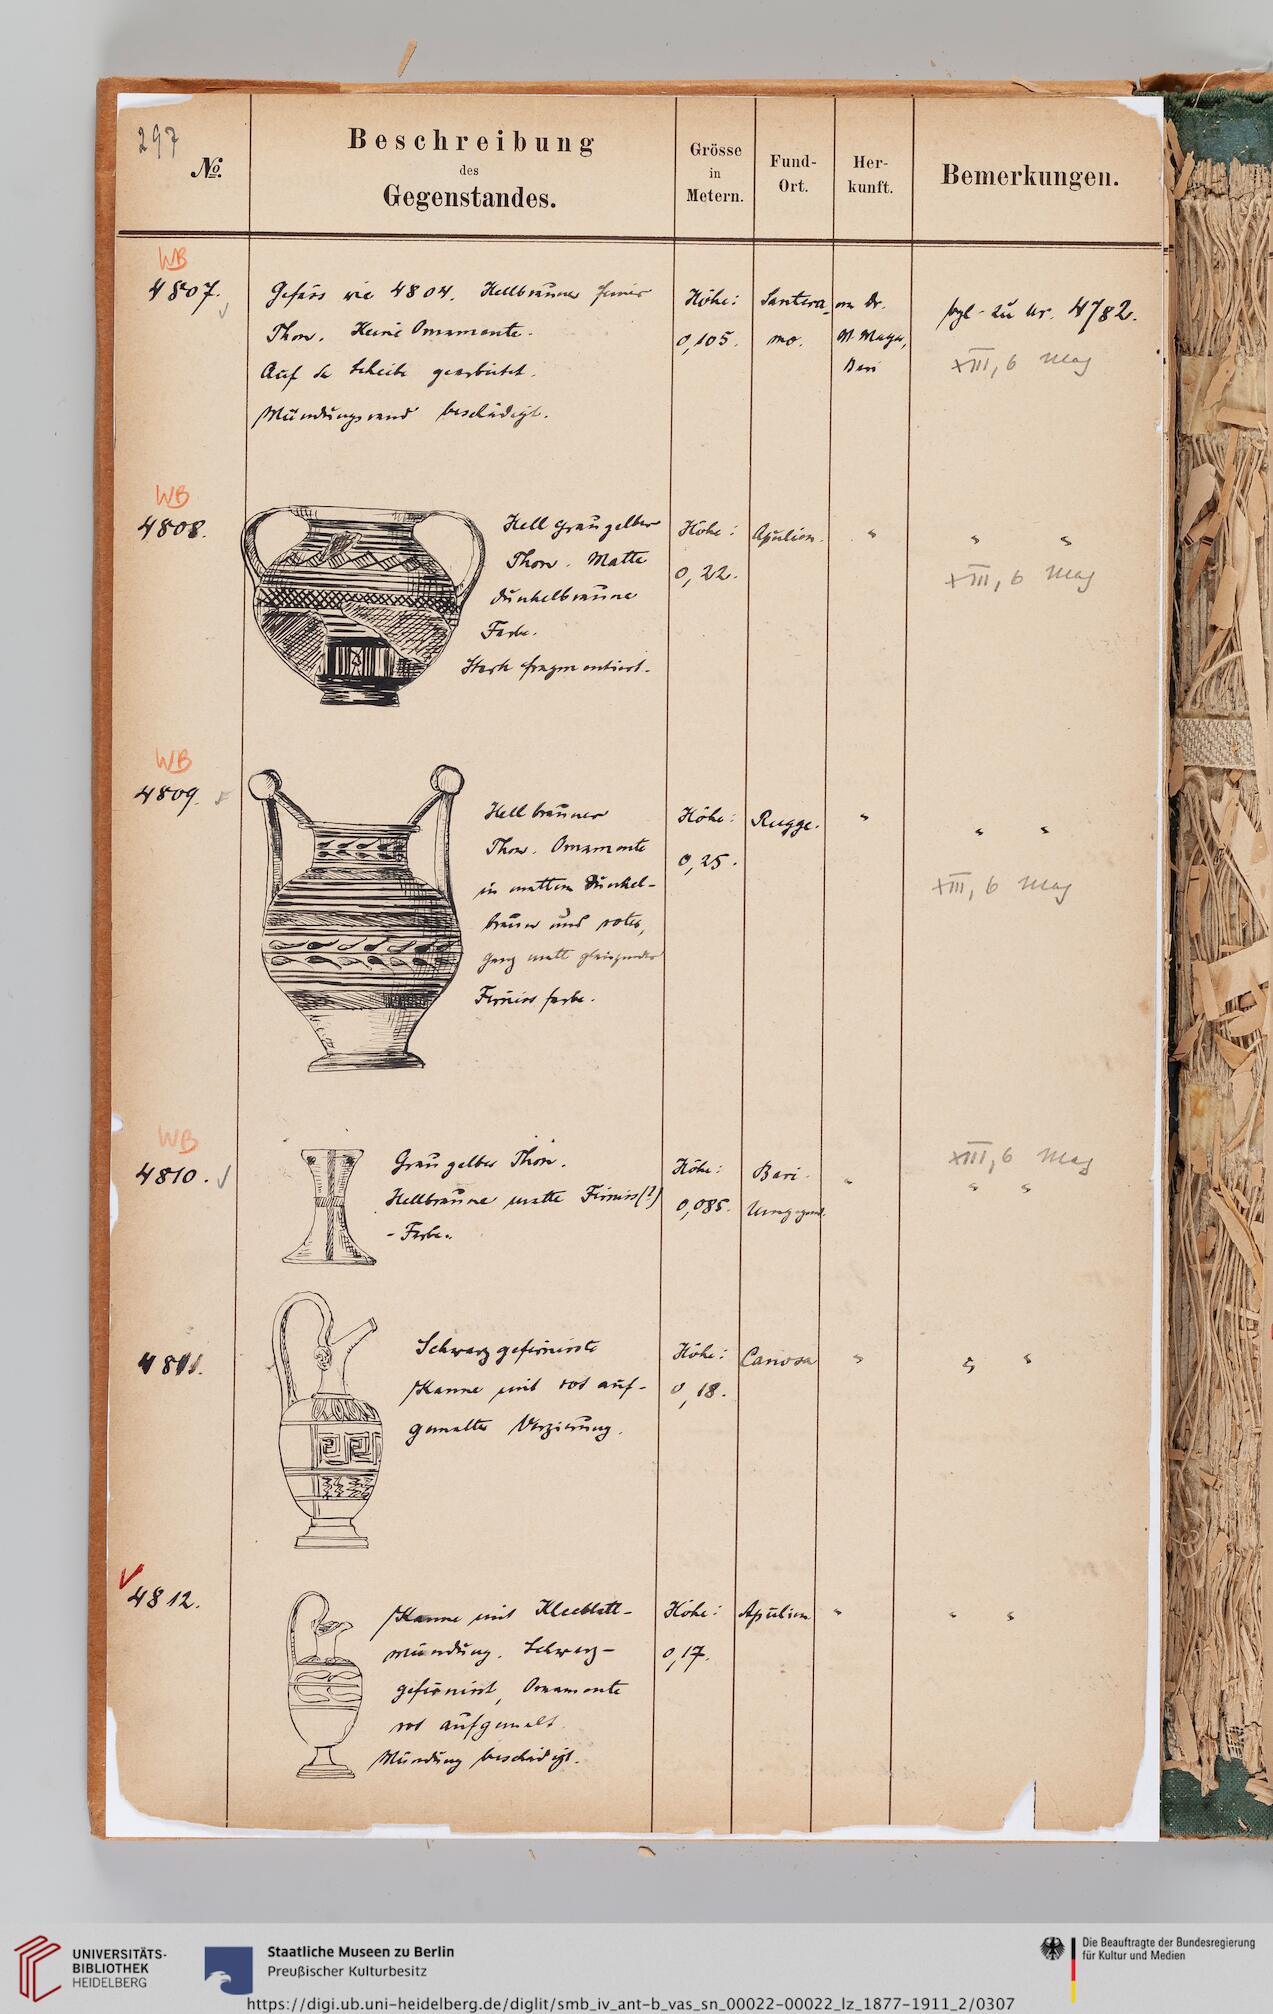 297
No.
Beschreibung
des
Gegenstandes.
Grösse
in
Metern.
Fund-
Ort.
Her-
kunft.
Bemerkungen.
WB
4807.
Gefäss wie 4804. Hellbrauner feiner
Thon. Keine Ornamente.
Auf der Scheibe gearbeitet.
Mündungsrand beschädigt.
Höhe:
0,105.
Santera-
mo.
von Dr.
M. Mayer,
Bari
vgl. zu Nr. 4782.
XIII, 6 Mag
WB
4808.
Hell graugelber
Thon. Matte
dunkelbraune
Farbe.
Stark fragmentiert.
Höhe:
0,22.
Apulien.
"
" "
XIII, 6 Mag
WB
4809.
Hellbrauner
Thon. Ornamente
in mattem dunkel-
brauner und roter,
ganz matt glänzender
Firniss farbe.
Höhe:
0,25.
Rugge.
"
" "
XIII, 6 Mag
WB
4810.
Graugelber Thon.
Hellbraune matte Firniss(?)
- Farbe.
Höhe:
0,085.
Bari.
Umgegend.
"
XIII, 6 Mag
" "
4811.
Schwarzgefirnisste
Kanne mit rot auf-
gemalter Verzierung.
Höhe:
0,18.
Canosa
"
" "
4812.
Kanne mit Kleeblatt-
mündung. Schwarz-
gefirnisst, Ornamente
rot aufgemalt.
Mündung beschädigt.
Höhe:
0,17.
Apulien
"
" "
UNIVERSITÄTS-
BIBLIOTHEK
HEIDELBERG
Staatliche Museen zu Berlin
Preußischer Kulturbesitz
Die Beauftragte der Bundesregierung
für Kultur und Medien
https://digi.ub.uni-heidelberg.de/diglit/smb_iv_ant-b_vas_sn_00022-00022_lz_1877-1911_2/0307